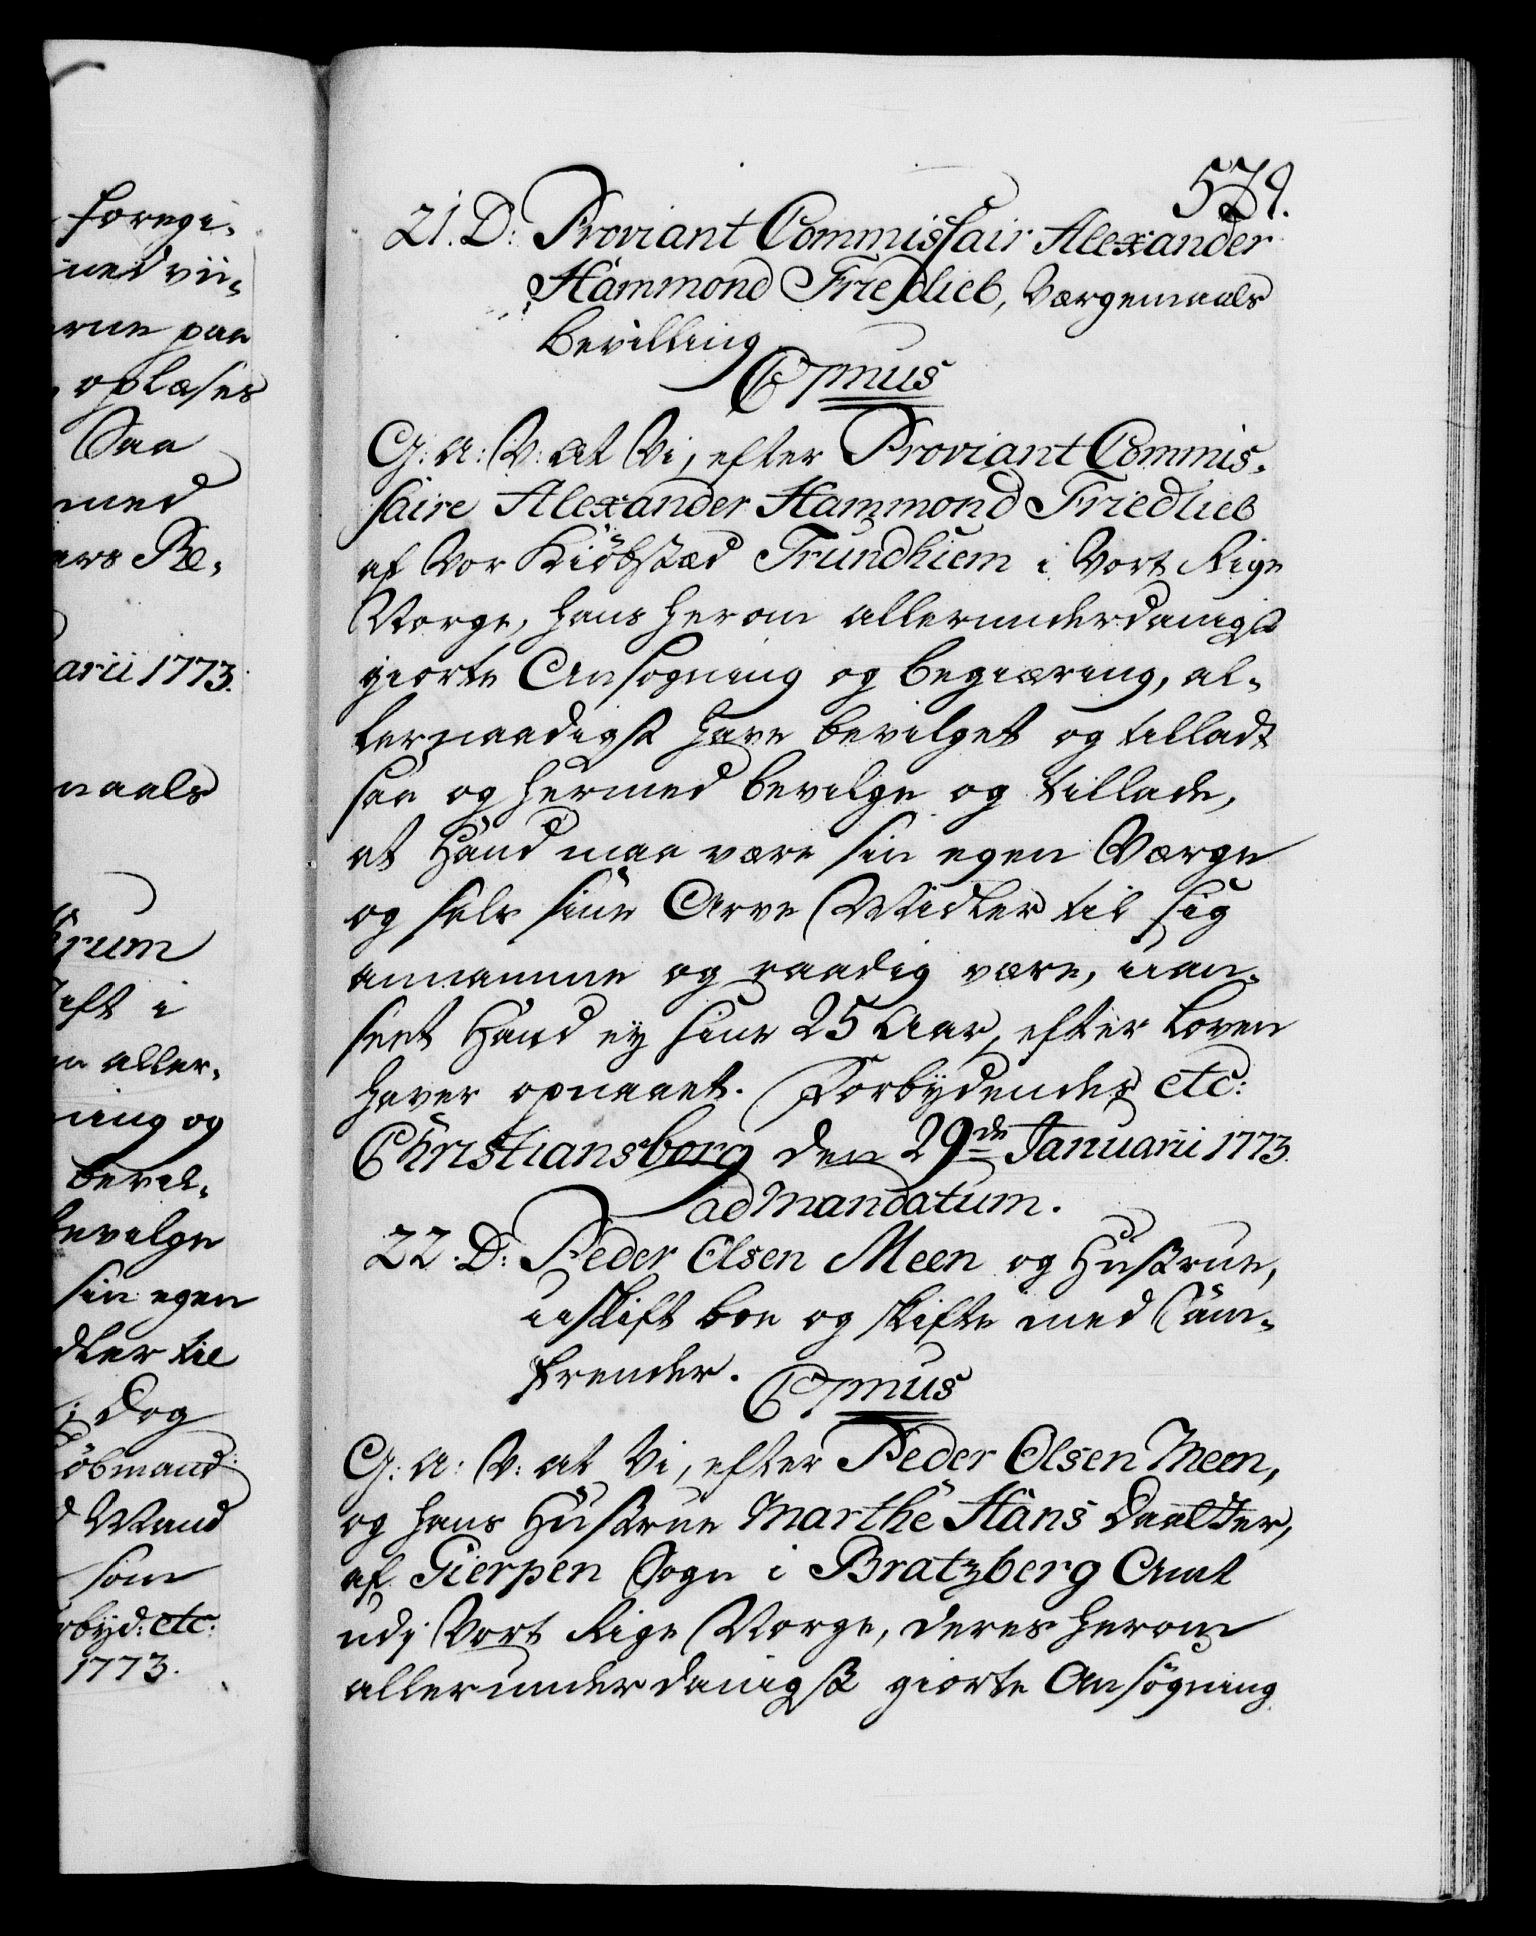 foregi-
med vii-
erne paa
oplæses
Saa
med
ers Be-
arii 1773.
maals
Krum
ift i
aller-
ning og
bevil-
bevilge
sin egen
dler til
Dog
öbmand
Mand
som
rbyd: etc:
1773.
579.
21. D. Proviant Commissair Alexander
Hammond Friedlieb, Værgemaals
bevilling
C7mus
G: A: V: at Vi, efter Proviant Commis-
saire Alexander Hammond Friedlieb
af Vor Kiöbstæd Trundhiem i Vort Rige
Norge, hans herom allerunderdanigst
giorte Ansøgning og begiæring, al-
lernaadigst have bevilget og tilladt
saa og hermed bevilge og tillade,
at Hand maa være sin egen Værge
og selv sine Arve Midler til sig
annamme og raadig være, uan-
seet Hand ey sine 25 Aar, efter Loven
haver opnaaet. Forbydendes etc:
Christiansborg den 29de Januarii 1773.
ad Mandatum.
22. D: Peder Olsen Meen og Hustrue,
uskift boe og skifte med Sam-
frender.
C7mus
G: A: V: at Vi, efter Peder Olsen Meen,
og hans Hustrue Marthe Hans Daatter,
af Gierpen Sogn i Bratzberg Amt
udj Vort Rige Norge, deres herom
allerunderdanigst giorte Ansögning